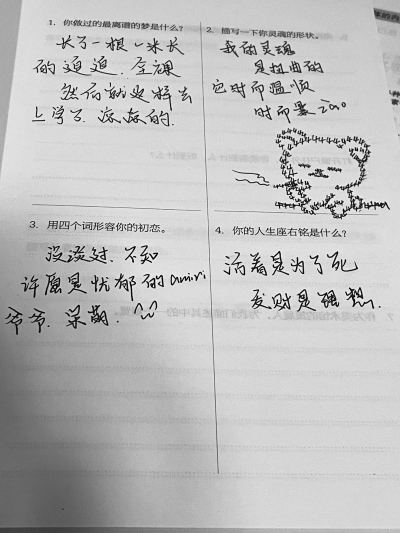 1. 你做过的最离谱的梦是什么?
长了一根一米长
的
然后就这样去
上学了.
2. 描写一下你灵魂的形状。
我的灵魂
是扭曲的
它时而温顺
时而暴
3. 用四个词形容你的初恋。
没谈过.不知
许愿是忧郁的amiri
爷爷.呆萌.
4. 你的人生座右铭是什么?
活着是为了死
发财是理想.